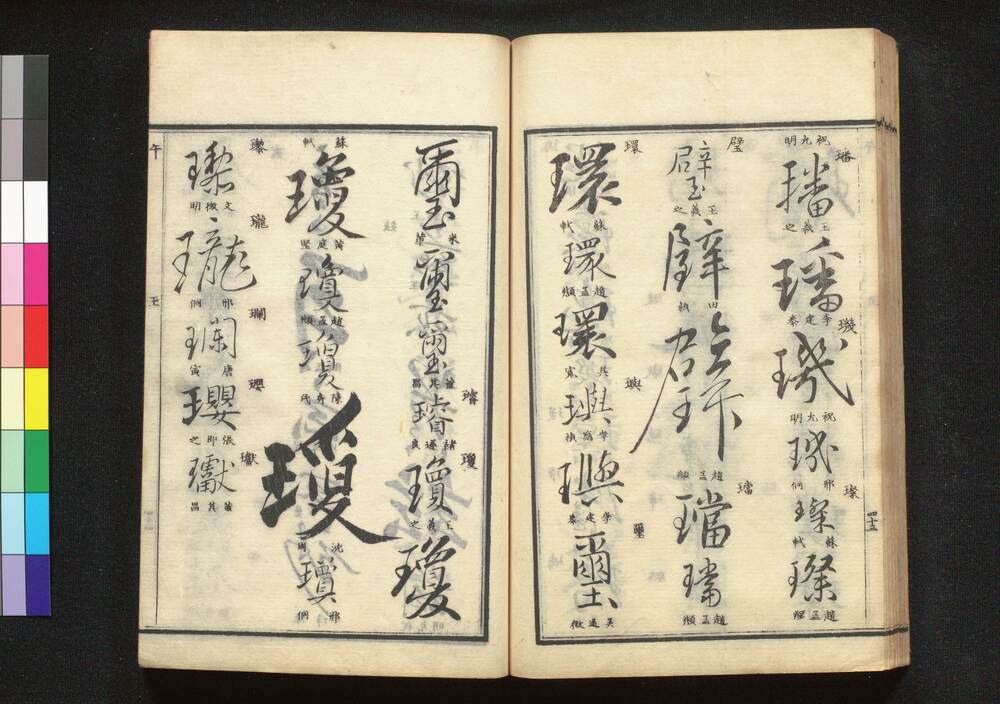 璠
璠
祝允明
璠
王羲之
璣
璣
李建泰
璣
祝允明
璨
璣
邢侗
璨
蘇軾
璨
趙孟頫
四十五
璧
璧
王羲之
璧
田
璧
趙孟頫
璫
璫
璫
趙孟頫
環
環
蘇軾
環
趙孟頫
環
吳寬
璵
璵
李
璵
李建泰
璽
璽
吳
璽
米芾
璽
璽
董其昌
璿
璿
褚遂良
瓊
瓊
王羲之
瓊
蘇軾
瓊
黃庭堅
瓊
趙孟頫
瓊
陳
瓊
沈周
瓊
邢侗
璨
璨
文徵明
瓏
瓏
邢侗
瓓
瓓
唐寅
瓔
瓔
張即之
瓛
瓛
董其昌
午
玉